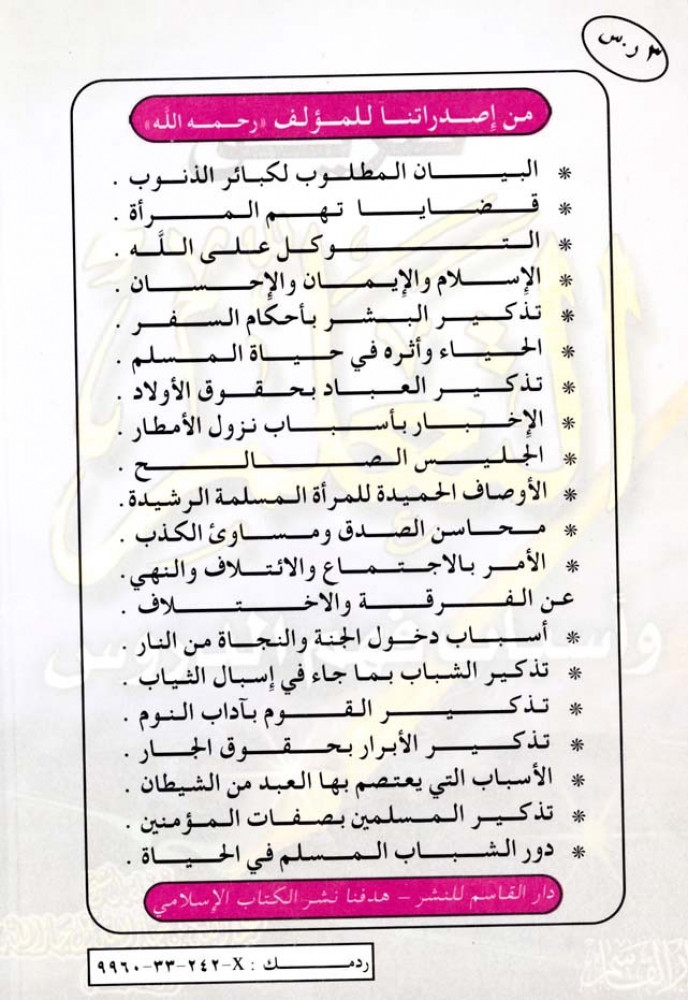 ٣ ر.س
من إصدراتنا للمؤلف «رحمه الله»
* البيان المطلوب لكبائر الذنوب .
* قضايا تهم المرأة .
* التوكل على اللَّه .
* الإسلام والإيمان والإحسان .
* تذكير البشر بأحكام السفر .
* الحياء وأثره في حياة المسلم .
* تذكير العباد بحقوق الأولاد .
* الإخبار بأسباب نزول الأمطار .
* الجليس الصالح .
* الأوصاف الحميدة للمرأة المسلمة الرشيدة .
* محاسن الصدق ومساوئ الكذب .
* الأمر بالاجتماع والائتلاف والنهي .
عن الفرقة والاختلاف .
* أسباب دخول الجنة والنجاة من النار .
* تذكير الشباب بما جاء في إسبال الثياب .
* تذكير القوم بآداب النوم .
* تذكير الأبرار بحقوق الجار .
* الأسباب التي يعتصم بها العبد من الشيطان .
* تذكير المسلمين بصفات المؤمنين .
* دور الشباب المسلم في الحياة .
دار القاسم للنشر - هدفنا نشر الكتاب الإسلامي
ردمك : X-٢٤٢-٣٣-٩٩٦٠
وأسباب فهم الدروس
دار القاسم